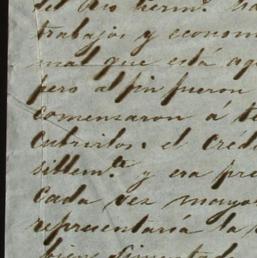 del Rio herm.º
trabajos y econom
mal que está aq
pero al fin fueron
comenzaron á t
cubrirlos. el créd
sillem.ª y era pre
cada vez mayo
representaría la